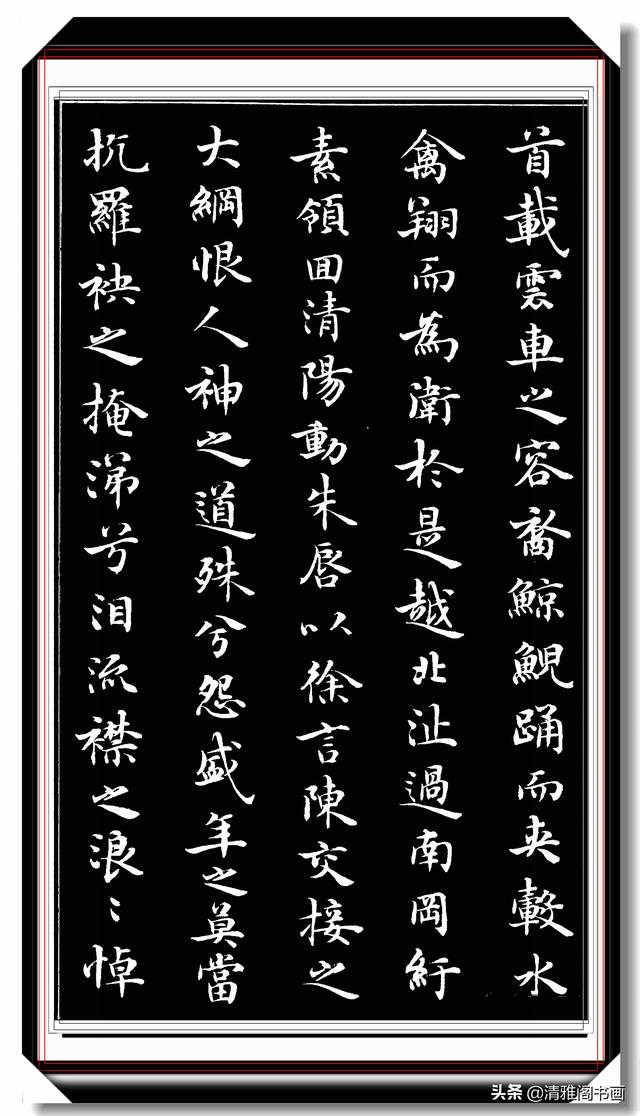 首載雲車之容裔鯨鯢踊而夾轂水
禽翔而為衛於是越北沚過南岡紆
素領回清陽動朱唇以徐言陳交接之
大綱恨人神之道殊兮怨盛年之莫當
抗羅袂之掩涕兮泪流襟之浪〻悼
头条@清雅阁书画